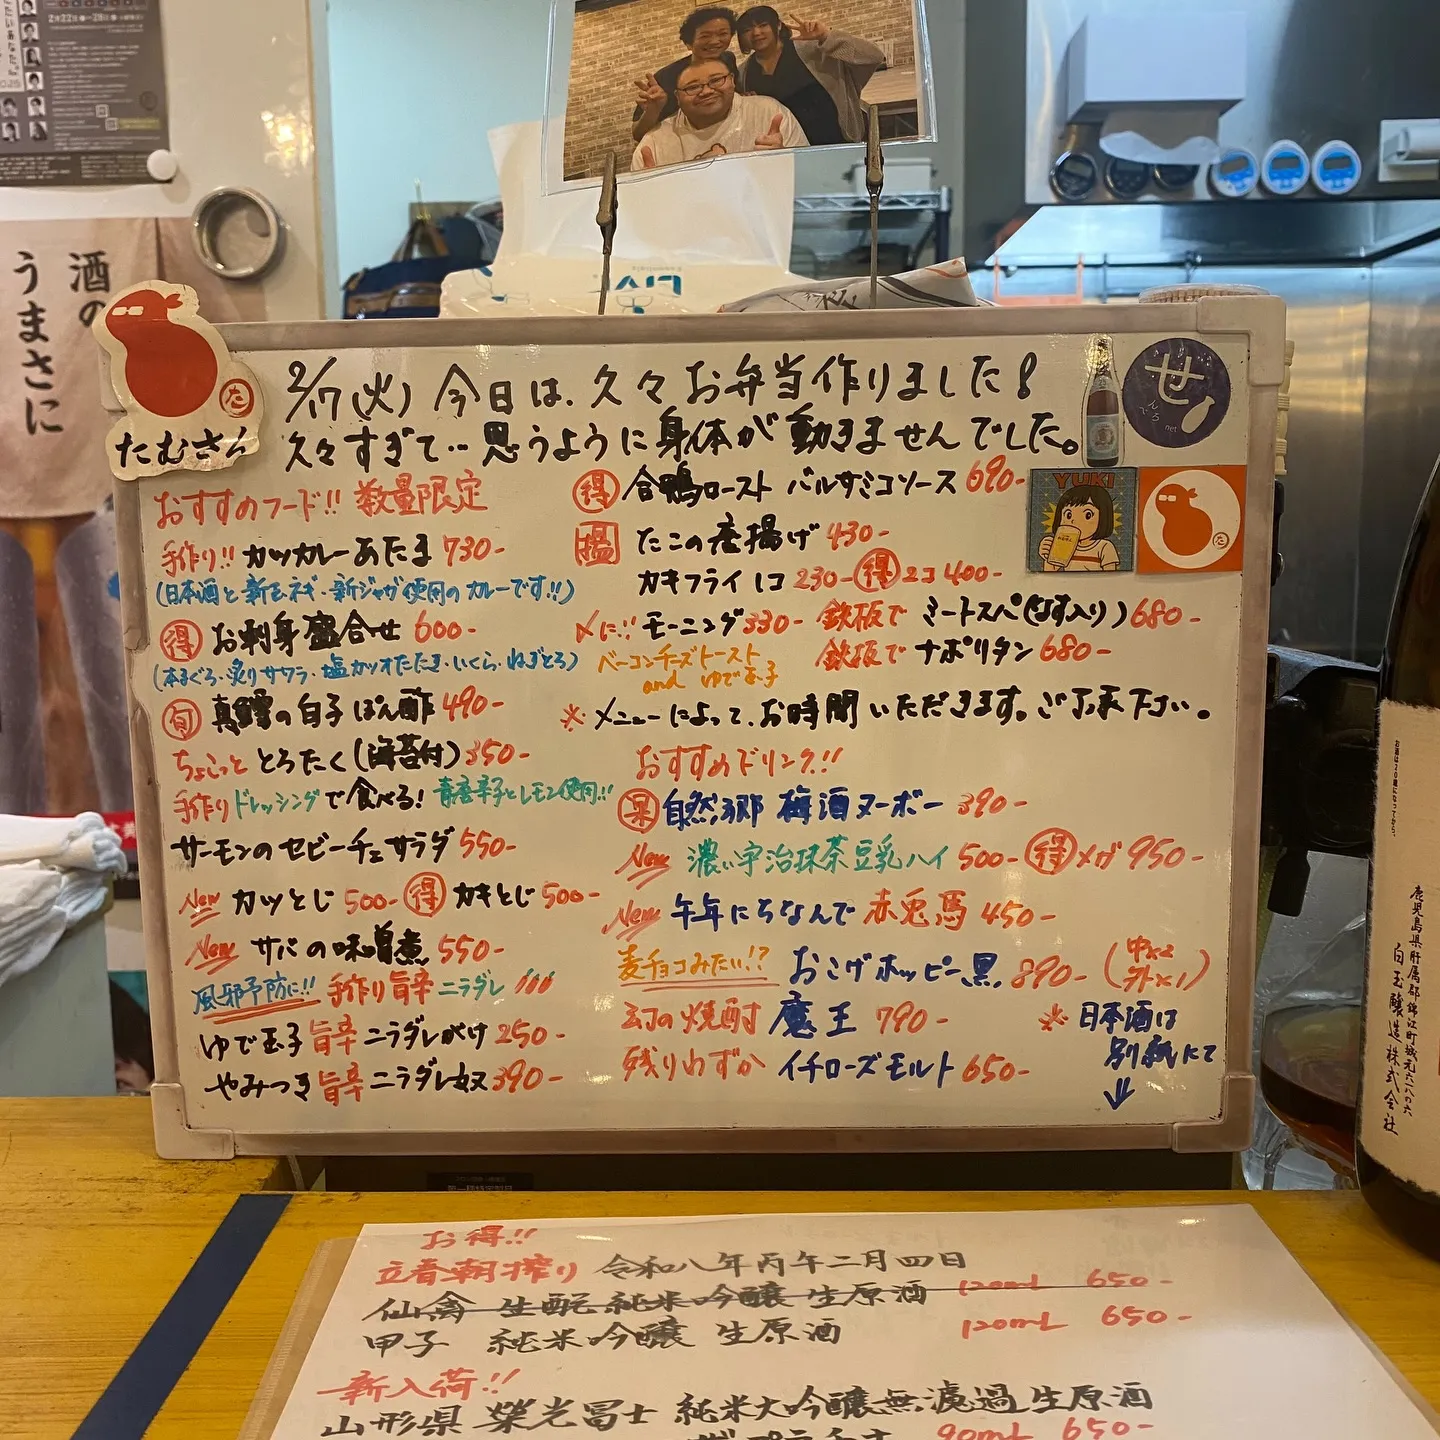 酒の
うまさに
たむさん
た
せ
んべろ
net
YUKI
た
2/17(火) 今日は、久々お弁当作りました!
久々すぎて…思うように身体が動きませんでした。
おすすめのフード!! 数量限定
手作り!! カツカレーあたま 730-
(日本酒と新玉ネギ・新ジャガ使用のカレーです!!)
得 お刺身盛合せ 600-
(本まぐろ・炙りサワラ・塩カツオたたき・いくら・ねぎとろ)
旬 真鱈の白子ぽん酢 490-
ちょこっと とろたく(海苔付) 350-
手作りドレッシングで食べる! 青唐辛子とレモン使用!!
サーモンのセビーチェサラダ 550-
New カツとじ 500- 得 カキとじ 500-
New サバの味噌煮 550-
風邪予防に!! 手作り旨辛ニラダレ
ゆで玉子 旨辛ニラダレがけ 250-
やみつき旨辛ニラダレ奴 390-
得 合鴨ロースト バルサミコソース 690-
揚 たこの唐揚げ 430-
カキフライ 1コ 230- 得 2コ 400-
〆に!! モーニング 330-
ベーコンチーズトースト
and ゆで玉子
鉄板で ミートスパ(なす入り) 680-
鉄板で ナポリタン 680-
※メニューによって、お時間いただきます。ご了承下さい。
おすすめドリンク!!
果 自然郷 梅酒ヌーボー 390-
New 濃い宇治抹茶豆乳ハイ 500- 得 メガ 950-
New 午年にちなんで 赤兎馬 450-
麦チョコみたい!? おこげホッピー黒 890- (中×2
外×1)
幻の焼酎 魔王 790-
残りわずか イチローズモルト 650-
※日本酒は
別紙にて
↓
お得!!
立春朝搾り 令和八年丙午二月四日
仙禽 生酛 純米吟醸 生原酒 120ml 650-
甲子 純米吟醸 生原酒 120ml 650-
新入荷!!
山形県 榮光冨士 純米大吟醸無濾過生原酒
90ml 650-
鹿児島県肝属郡錦江町城元六一八の六
白玉醸造株式会社
お酒は20歳になってから。